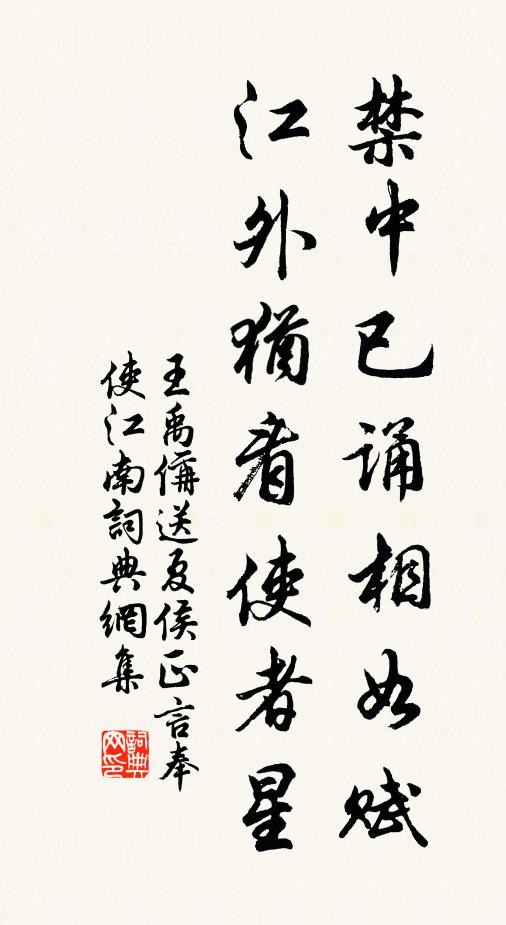 禁中已誦相如賦
江外猶看使者星
王禹偁送夏侯正言奉
使江南詞典網集
詞典网印